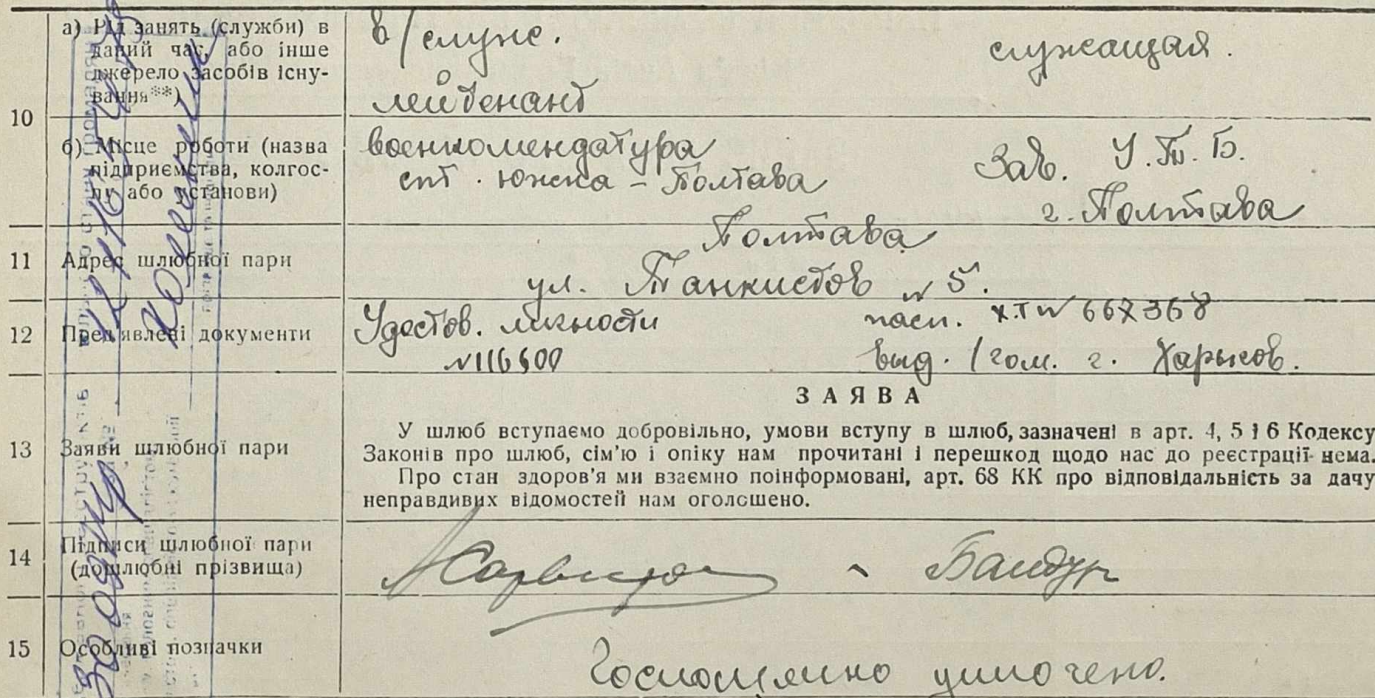 10
а) Рід занять (служби) в
даний час, або інше
джерело засобів існу-
вання**)
в/служ.
лейтенант
служащая.
б) Місце роботи (назва
підприємства, колгос-
пу або установи)
военкомендатура
ст. южна - Полтава
Зав.
г. Полтава
11 Адрес шлюбної пари
Полтава
ул. Танкистов № 5.
12 Пред'явлені документи
Удостов. личности
пасп.
выд. г. Харьков.
13 Заяви шлюбної пари
ЗАЯВА
У шлюб вступаємо добровільно, умови вступу в шлюб, зазначені в арт. 4, 5 і 6 Кодексу
Законів про шлюб, сім'ю і опіку нам прочитані і перешкод щодо нас до реєстрації нема.
Про стан здоров'я ми взаємно поінформовані, арт. 68 КК про відповідальність за дачу
неправдивих відомостей нам оголошено.
14 Підписи шлюбної пари
(дошлюбні прізвища)
Бандур
15 Особливі позначки
Госпошлино уплочено.